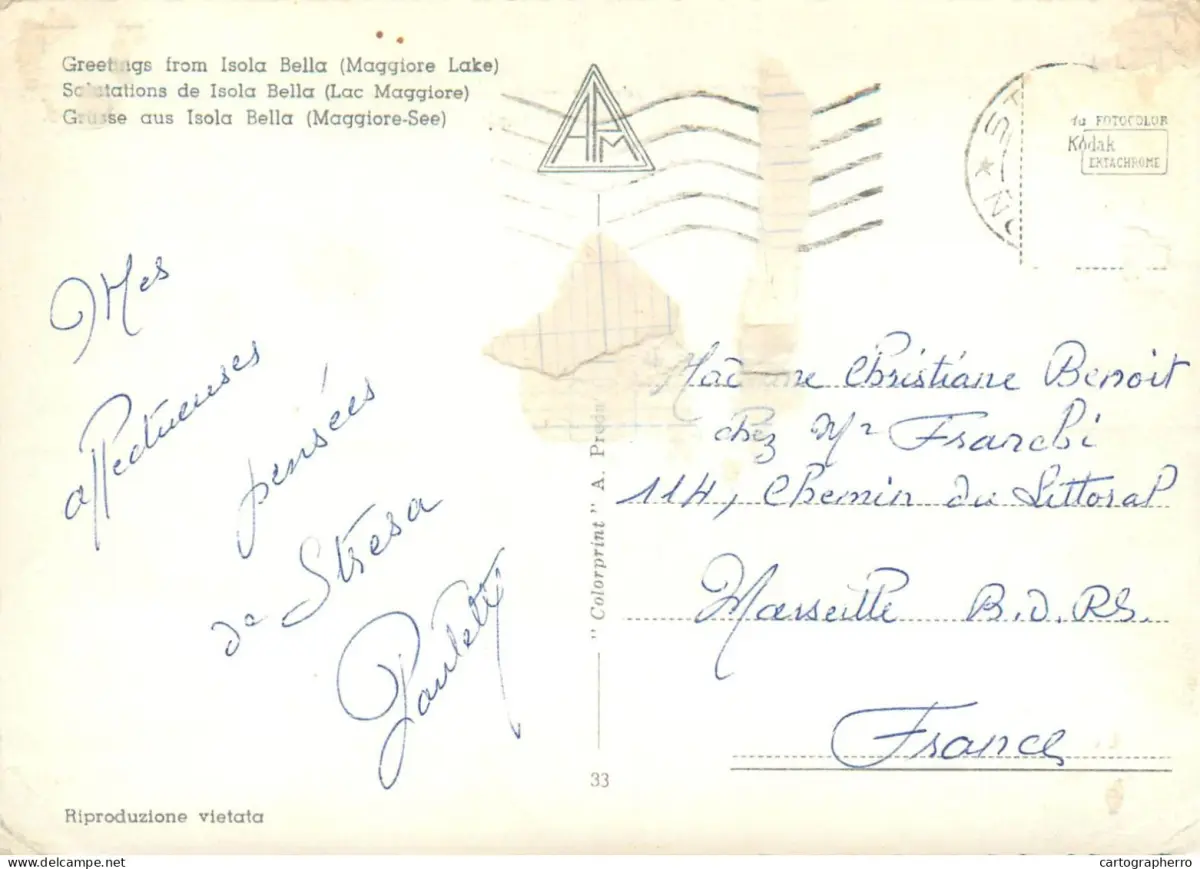 Greetings from Isola Bella (Maggiore Lake)
Salutations de Isola Bella (Lac Maggiore)
Grüsse aus Isola Bella (Maggiore-See)
APM
da FOTOCOLOR
Kodak
EKTACHROME
Mes
affectueuses
pensées
de Stresa
Paulette
"Colorprint" A. Pred
Madame Christiane Benoit
chez Mr Franchi
114, Chemin du Littoral
Marseille B.D.RS.
France
33
Riproduzione vietata
delcampe.net
cartographerro